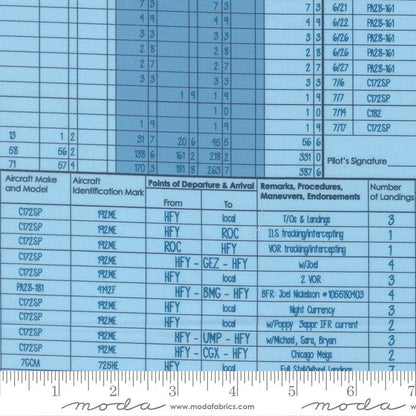 7 3 7 3 6/21 PA28-161
4 9 4 9 6/22 PA28-161
3 3 3 3 6/26 PA28-161
2 8 2 8 6/26 PA28-161
2 7 2 7 6/27 PA28-161
3 3 3 3 7/6 C172SP
1 9 1 9 1 9 7/7 C172SP
1 0 1 0 7/14 C182
1 9 1 9 7/17 C172SP
13 1 2 31 7 20 6 45 5 56 6
58 56 2 138 6 161 2 218 2 331 0 Pilot's Signature
71 57 4 170 3 181 8 263 7 387 6
Aircraft Make and Model Aircraft Identification Mark Points of Departure & Arrival From To Remarks, Procedures, Maneuvers, Endorsements Number of Landings
C172SP 192ME HFY local T/Os & Landings 3
C172SP 192ME HFY ROC ILS tracking/intercepting 1
C172SP 192ME ROC HFY VOR tracking/intercepting 1
C172SP 192ME HFY - GEZ - HFY w/Joel 4
C172SP 192ME HFY local 2 VOR 3
PA28-181 4142F HFY - BMG - HFY BFR: Joel Nickelson # 4
C172SP 192ME HFY local Night Currency 3
C172SP 192ME HFY local w/Poppy 3appr IFR current 2
C172SP 192ME HFY - UMP - HFY w/Michael, Sara, Bryan 3
C172SP 192ME HFY - CGX - HFY Chicago Meigs 2
7GCAA HFY local Full Stall/Wheel Landings 7
1 2 3 4 5 6
moda ©www.modafabrics.com moda